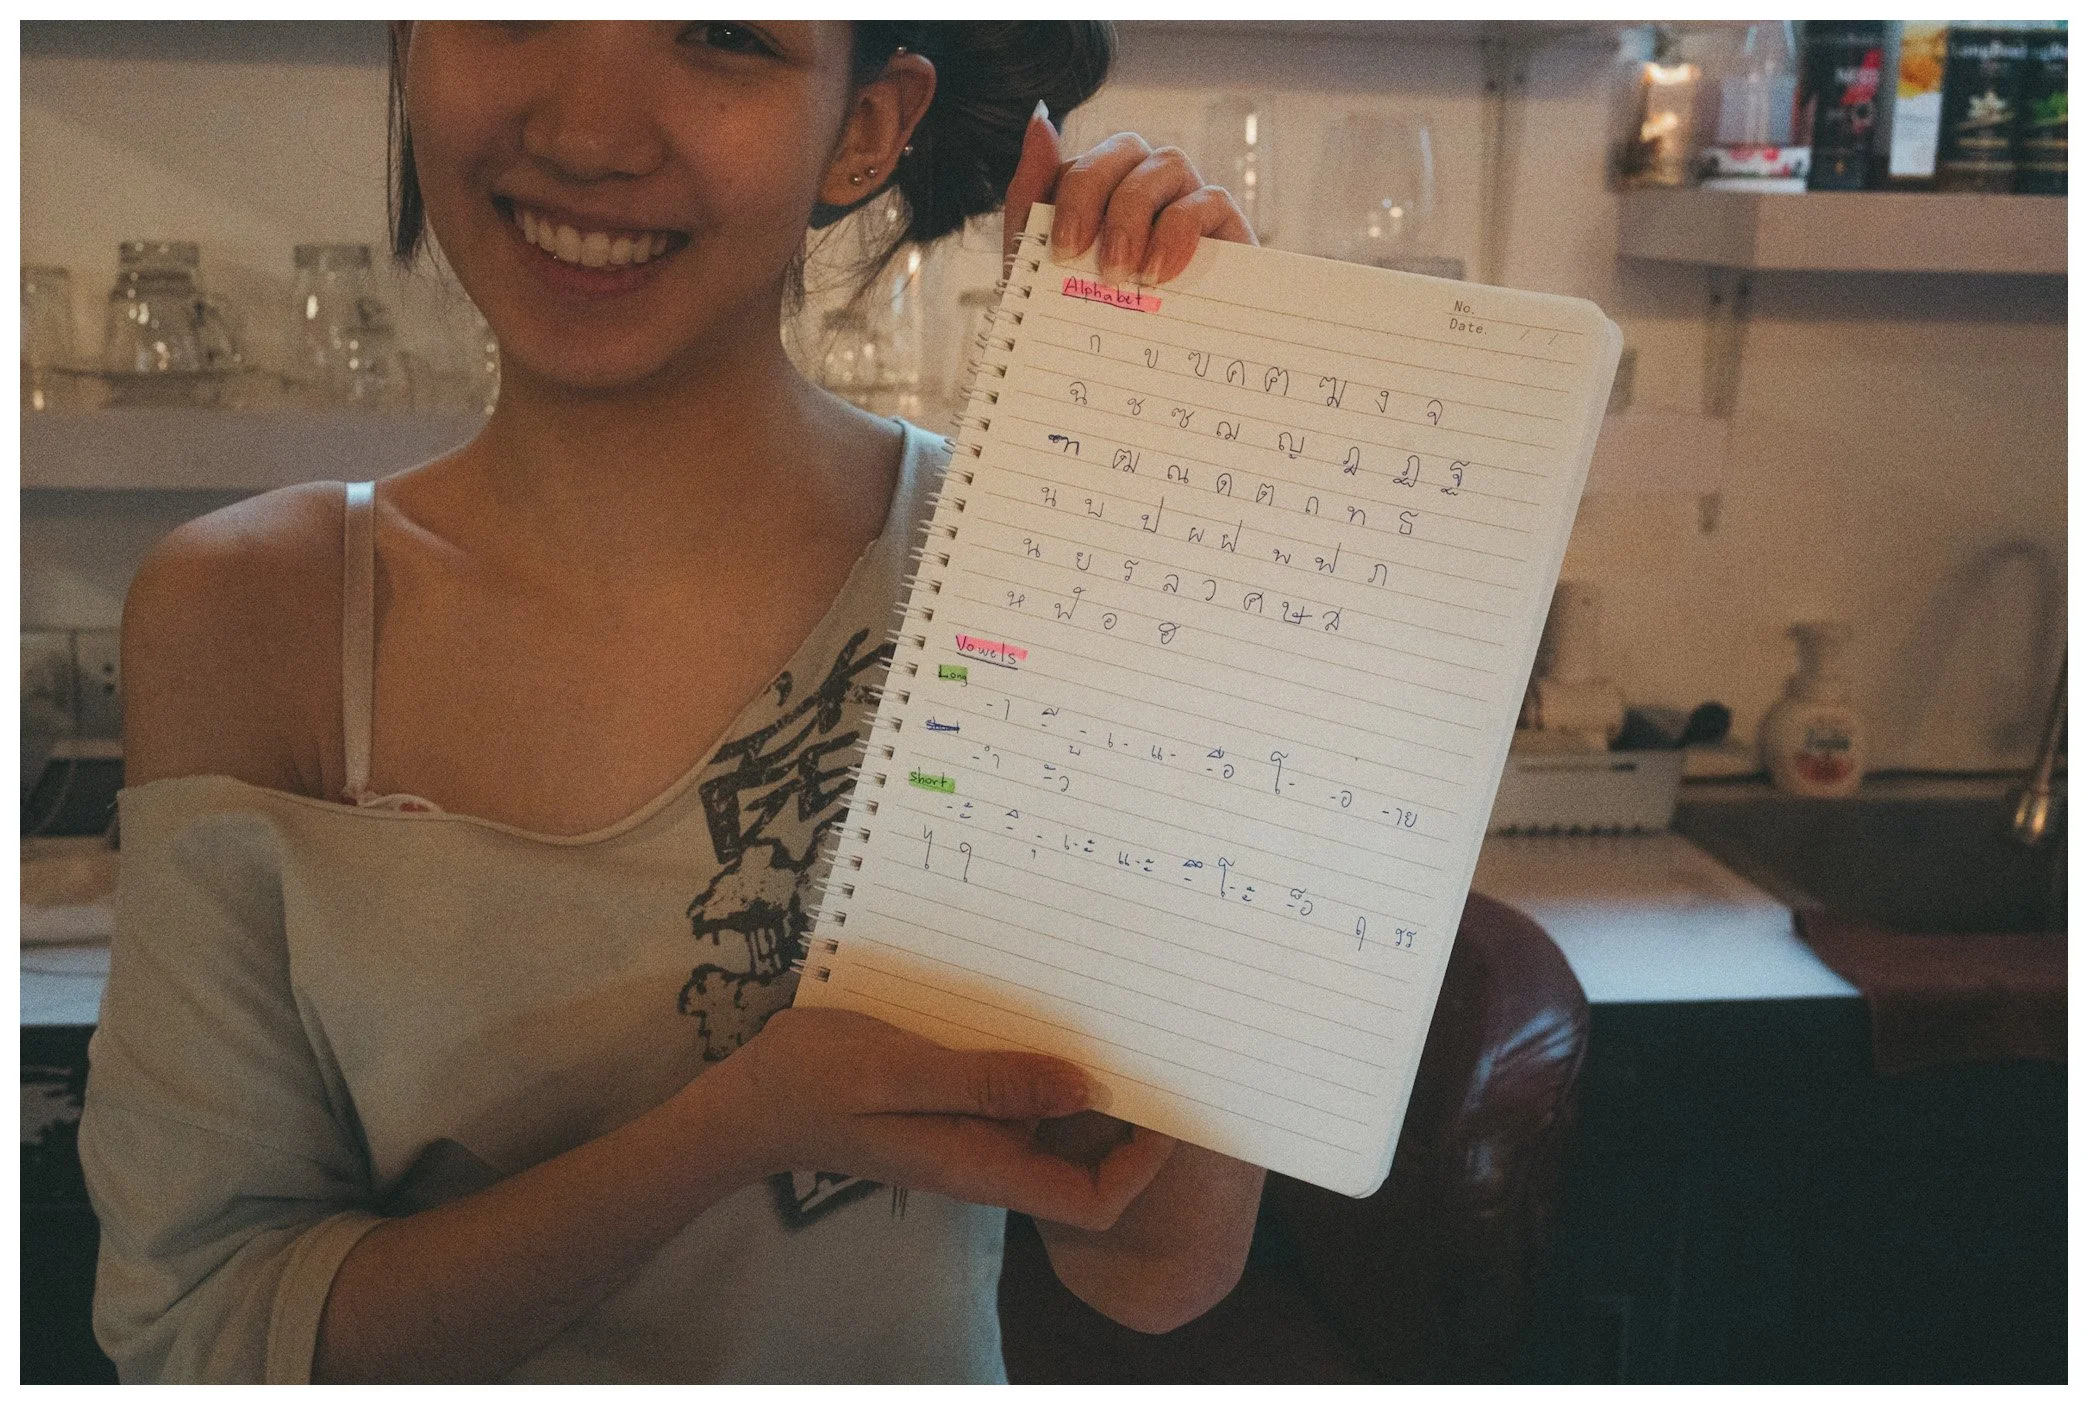 Alphabet
No.
Date. / /
ก ข ฃ ค ฅ ฆ ง จ
ฉ ช ซ ฌ ญ ฎ ฏ ฐ
ฑ ฒ ณ ด ต ถ ท ธ
น บ ป ผ ฝ พ ฟ ภ
น ย ร ล ว ศ ษ ส
ห ฬ อ ฮ
Vowels
Long
-า -ี -ู เ- แ- -ือ โ- -อ -าย
-ำ -ัว
Short
-ะ -ิ -ุ เ-ะ แ-ะ -ึ โ-ะ -็อ ฤ รร
ไ ใ